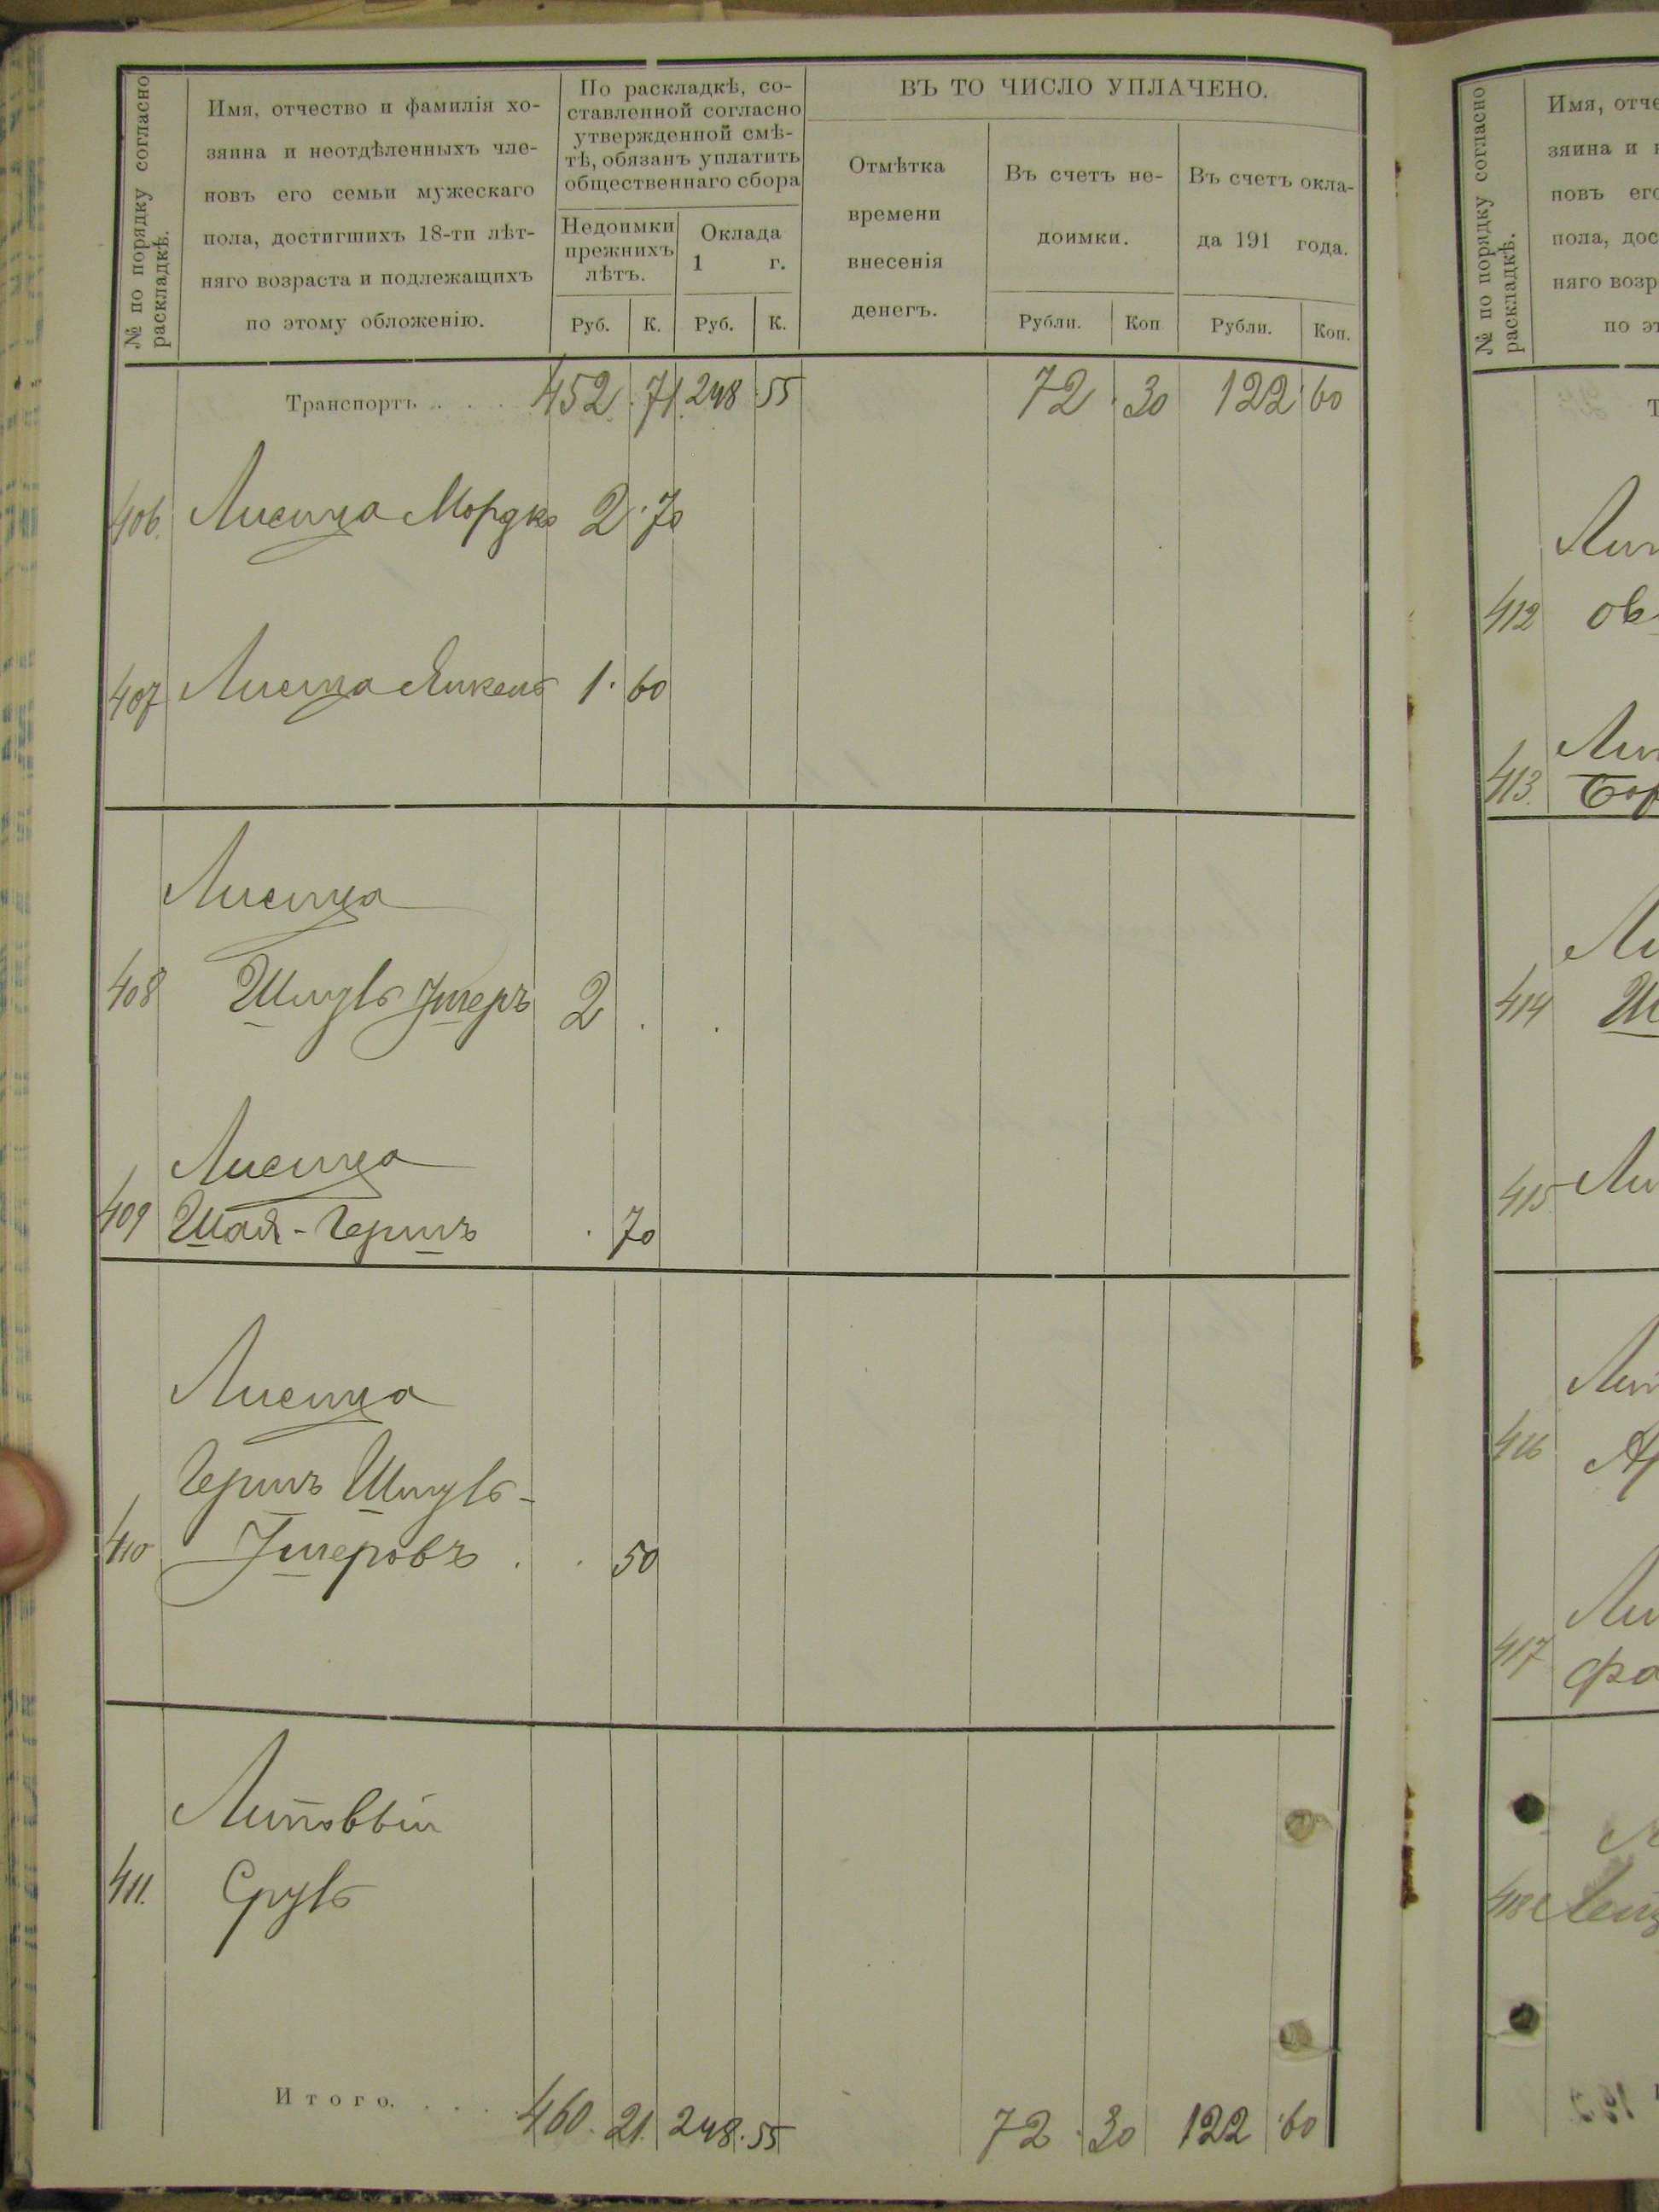 № по порядку согласно
раскладкѣ.
Имя, отчество и фамилія хо-
зяина и неотдѣленныхъ чле-
новъ его семьи мужескаго
пола, достигшихъ 18-ти лѣт-
няго возраста и подлежащихъ
по этому обложенію.
По раскладкѣ, со-
ставленной согласно
утвержденной смѣ-
тѣ, обязанъ уплатить
общественнаго сбора
Недоимки
прежнихъ
лѣтъ.
Оклада
1 г.
Руб. К. Руб. К.
ВЪ ТО ЧИСЛО УПЛАЧЕНО.
Отмѣтка
времени
внесенія
денегъ.
Въ счетъ не-
доимки.
Рубли. Коп
Въ счетъ окла-
да 191 года.
Рубли. Коп.
Транспортъ . . . . 452. 71. 248 55 72 30 122 60
406. Лисица Мордко 2. 70
407 Лисица Янкель 1. 60
Лисица
408 Шмуль Умеръ 2
Лисица
409 Шая-Гершъ . 70
Лисица
Гершъ Шмуль-
410 Умеровъ . . 50
Литоввій
411. Сруль
Итого. . . . . 460. 21. 248. 55 72 30 122 60
№ по порядку согласно
раскладкѣ.
Имя, отче
зяина и
новъ его
пола, дос
няго возр
по эт
412
413.
414
415
416
417
418